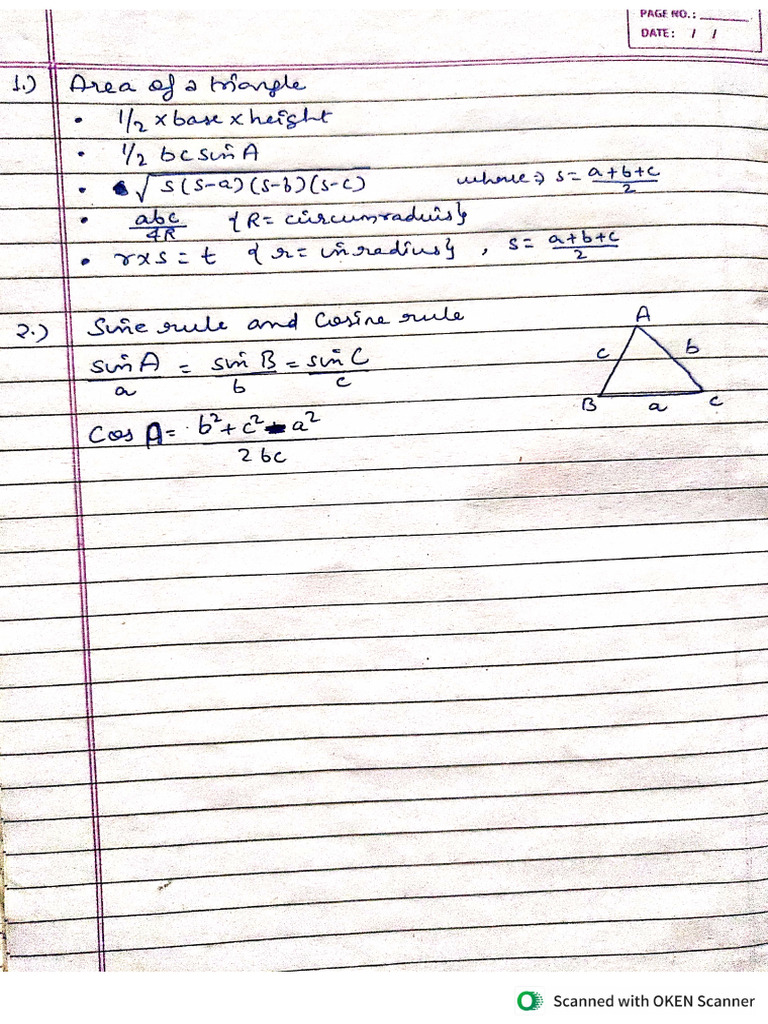 PAGE NO.:
DATE: / /
1.) Area of a triangle
• 1/2 × base × height
• 1/2 bc sin A
• √s(s-a)(s-b)(s-c) where ⇒ s = a+b+c/2
• abc/4R {R = circumradius}
• r×s = t {r = inradius}, s = a+b+c/2
2.) Sine rule and Cosine rule
sin A/a = sin B/b = sin C/c
Cos A = b²+c²-a²/2bc
A
c b
B a C
Scanned with OKEN Scanner